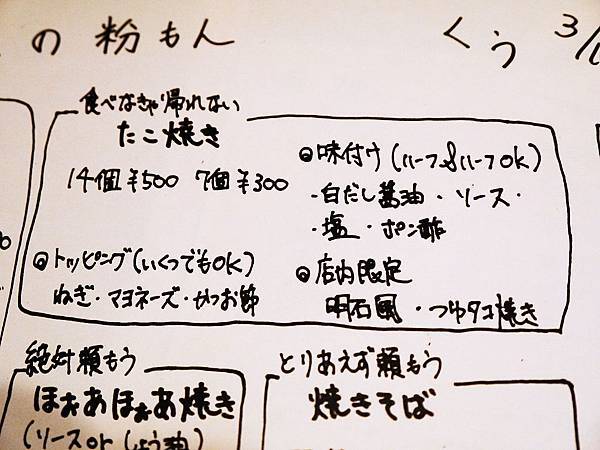 の粉もん くう 3/
食べなきゃ帰れない
たこ焼き
14個¥500 7個¥300
◎トッピング(いくつでもOK)
ねぎ・マヨネーズ・かつお節
◎味付け(ハーフ&ハーフOK)
・白だし醤油・ソース・
・塩・ポン酢
◎店内限定
明石風・つゆタコ焼き
絶対頼もう
ほぉあほぉあ焼き
(ソース or しょう油)
とりあえず頼もう
焼きそば